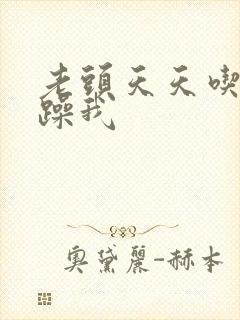 老頭天天喫
躁我
奧黛麗-赫本